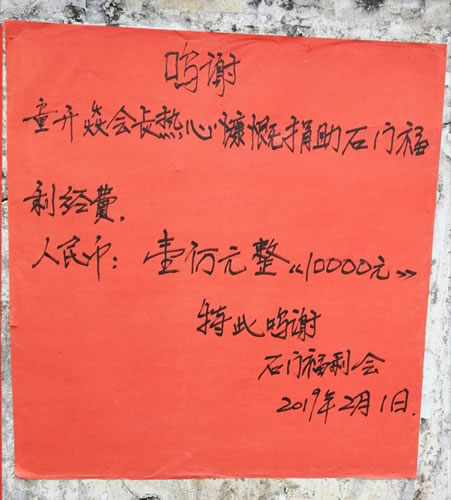 鸣谢
童开焱会长热心慷慨捐助石门福
利经费.
人民币：壹万元整《10000元》
特此鸣谢
石门福利会
2019年2月1日.